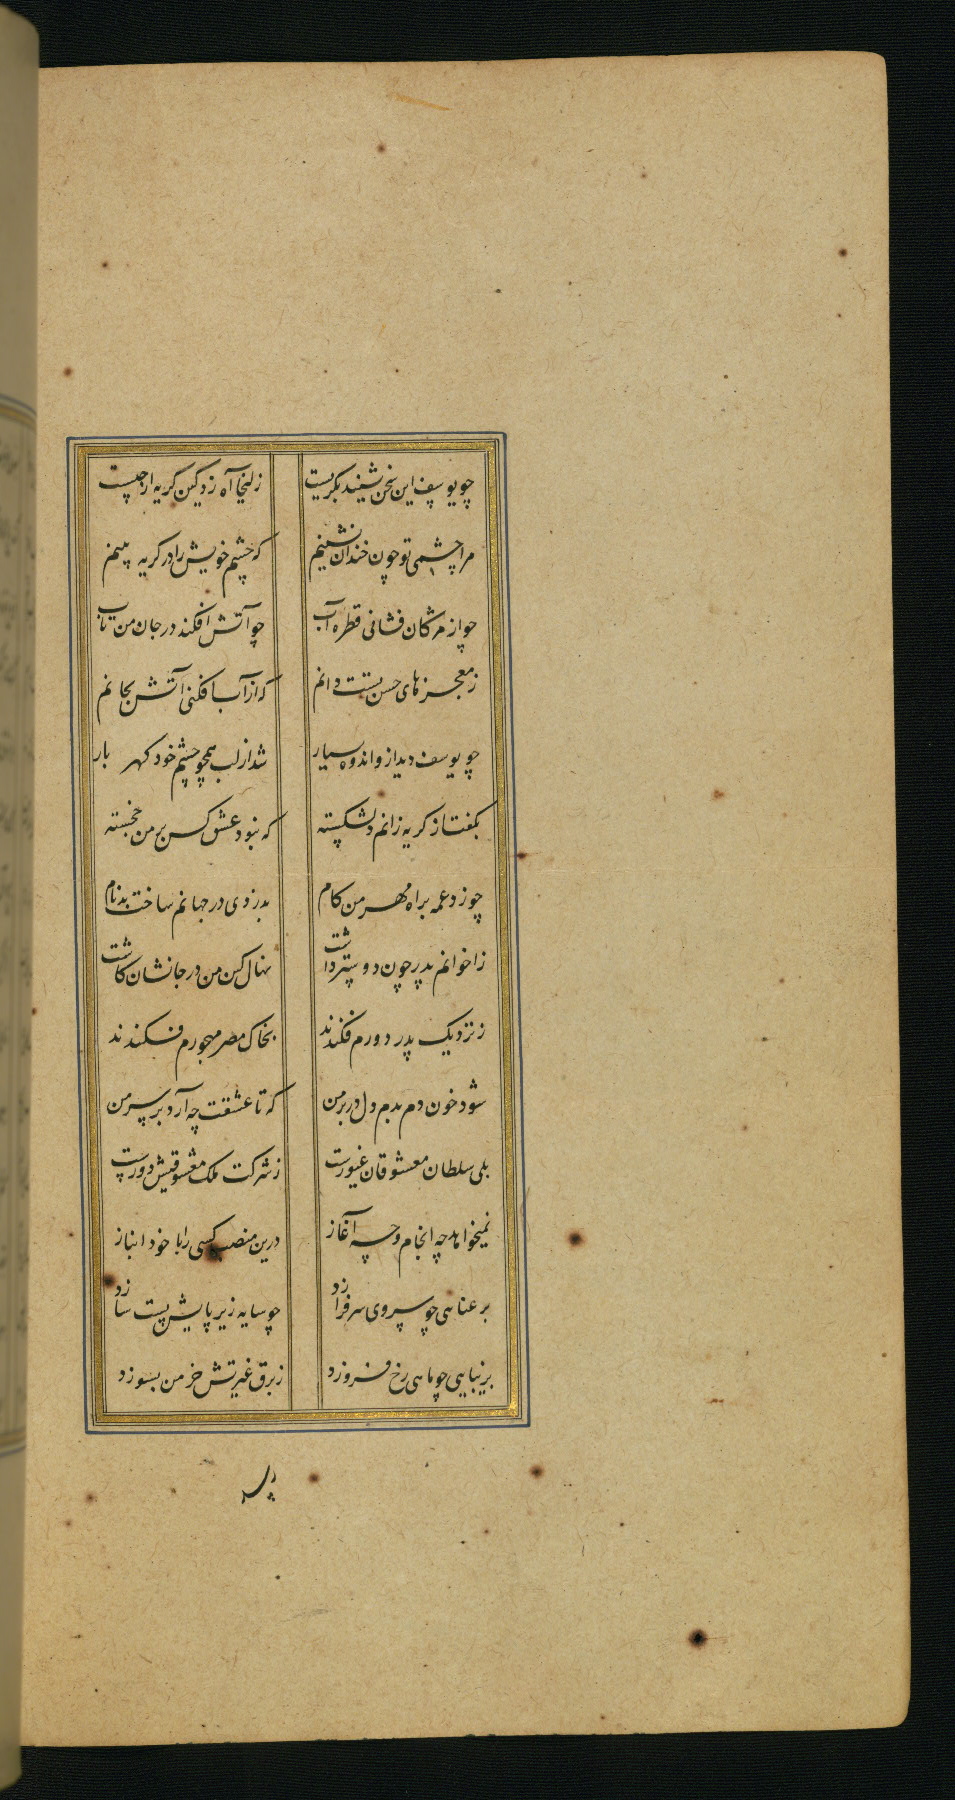 چو یوسف این سخن بشنید بگریست زلیخا آه زد کین گریه از چیست
مرا چشمی تو چون خندان نشینم که چشم خویش را در گریه بینم
چو از مژگان فشانی قطره آب چو آتش افکند در جان من تاب
ز معجزهای حسن تست دانم که از آب افکنی آتش بجانم
چو یوسف دید ازو اندوه بسیار شد از لب همچو چشم خود گهر بار
بگفتا ز گریه زانم دلشکسته که نبود عشق کس بر من خجسته
چو زد عمه براه مهر من کام بدزدی در جهانم ساخت بدنام
ز اخوانم پدر چون دوستر داشت نهال کین من در جانشان کاشت
ز نزدیک پدر دورم فکندند بخاک مصر مهجورم فکندند
شود خون دم بدم دل در بر من که تا عشقت چه آرد بر سر من
بلی سلطان معشوقان غیورست ز شرکت ملک معشوقیش دورست
نمیخواهد چه انجام و چه آغاز درین منصب کسی را با خود انباز
برعنایی چو سروی سر فرازد چو سایه زیر پایش پست سازد
بزیبایی چو ماهی رخ فروزد ز برق غیرتش خرمن بسوزد